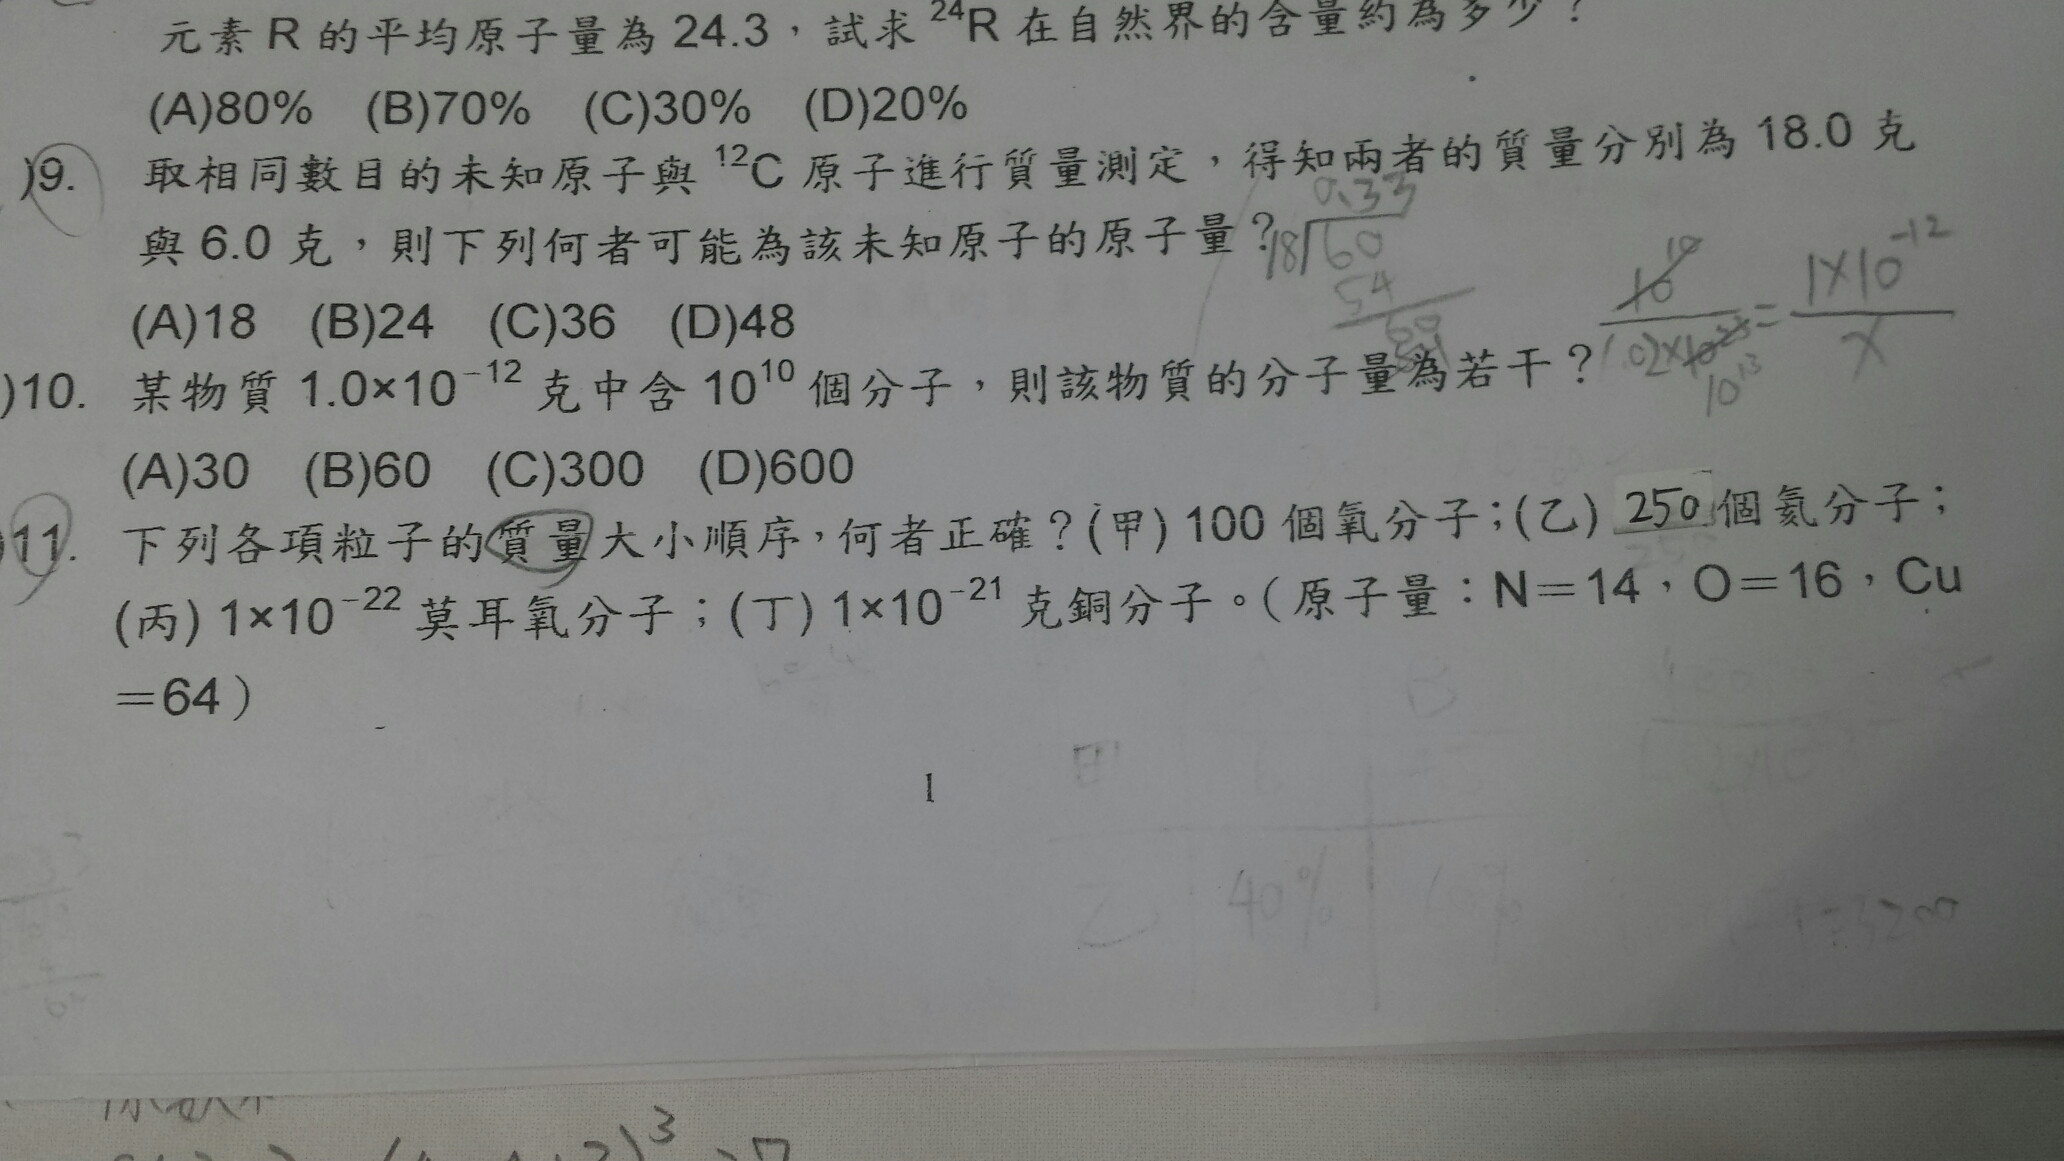 元素 R 的平均原子量為 24.3，試求 ²⁴R 在自然界的含量約為多少？
(A)80% (B)70% (C)30% (D)20%
)9. 取相同數目的未知原子與 ¹²C 原子進行質量測定，得知兩者的質量分別為 18.0 克
與 6.0 克，則下列何者可能為該未知原子的原子量？
0.33
18 60
54
60
(A)18 (B)24 (C)36 (D)48
10¹⁰ / 6.02×10²³ = 1×10⁻¹² / X
10¹³
)10. 某物質 1.0×10⁻¹² 克中含 10¹⁰ 個分子，則該物質的分子量為若干？
(A)30 (B)60 (C)300 (D)600
)11. 下列各項粒子的質量大小順序，何者正確？(甲) 100 個氧分子；(乙) 250 個氦分子；
(丙) 1×10⁻²² 莫耳氧分子；(丁) 1×10⁻²¹ 克銅分子。（原子量：N＝14，O＝16，Cu
＝64）
B
甲
乙 40% 10%
=3200
1